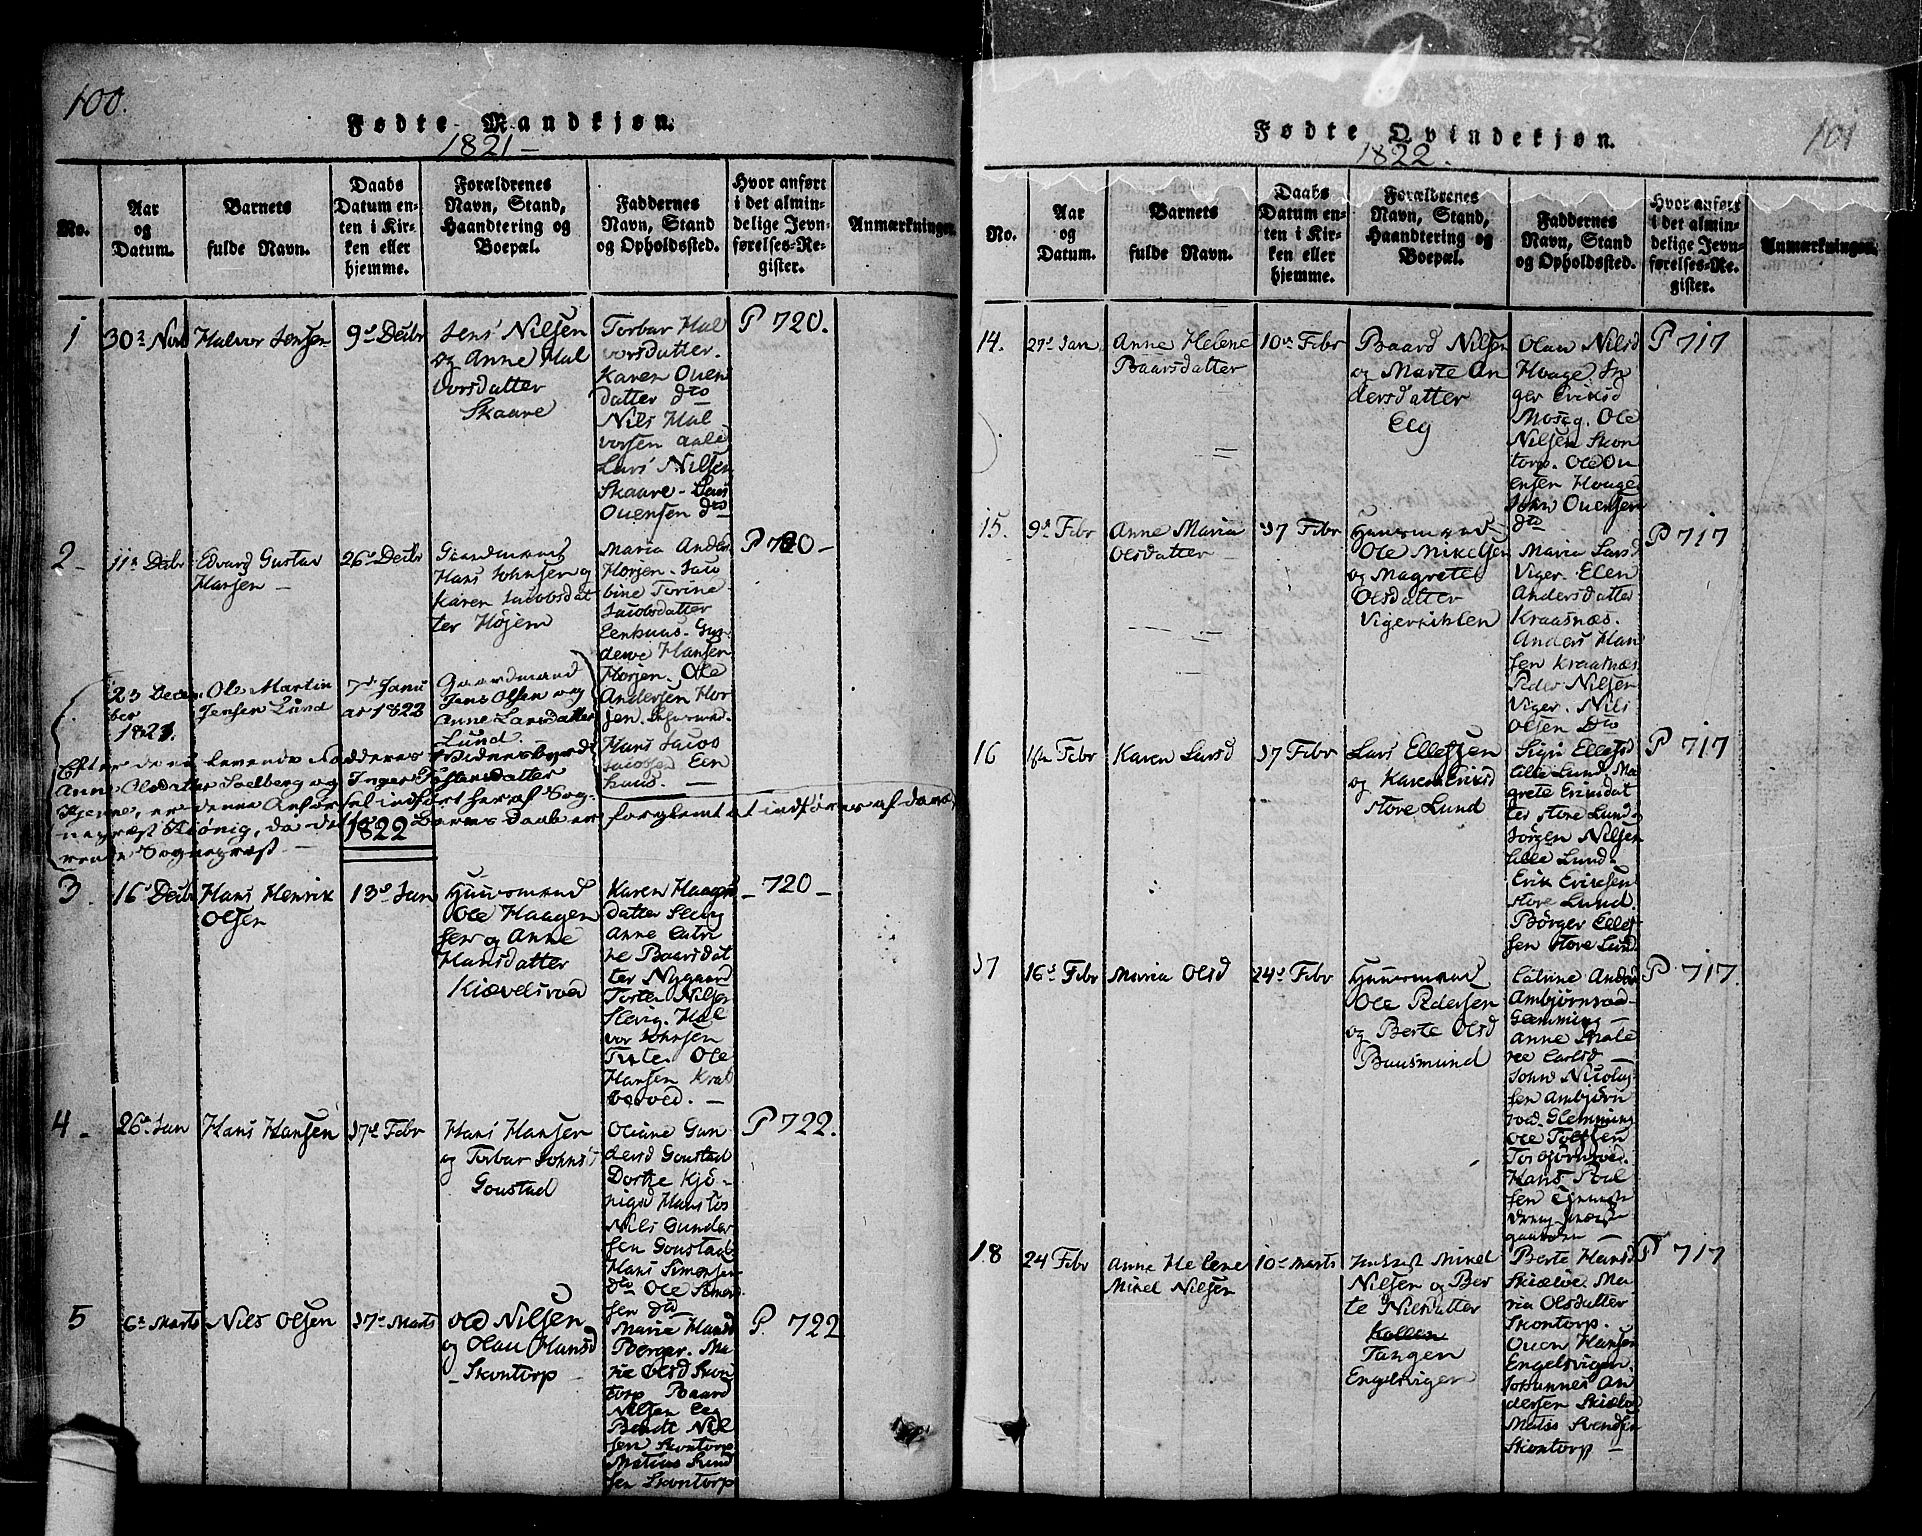 100.
Fødte Mandkjøn.
1821 —
No.
Aar
og
Datum.
Barnets
fulde Navn.
Daabs
Datum en-
ten i Kir-
ken eller
hjemme.
Forældrenes
Navn, Stand,
Haandtering og
Boepæl.
Faddernes
Navn, Stand
og Opholdssted.
Hvor anført
i det almin-
delige Jevn-
førelses-Re-
gister.
Anmærkninger.
1
30 Nov
Halvor Jensen
9 Decbr
Jens Nilsen
og Anne Hal
vorsdatter
Skaare
Torbar Hal
vorsdatter.
Karen Ouens
datter dto
Nils Hal
vorsen Aale
Lars Nilsen
Skaare - Jens
Ouensen dto
P 720.
2
11 Decbr
Edvard Gustav
Hansen —
26 Decbr
Gaardmand
Hans Johnsen og
Karen Jacobsdat
ter Højem
Maria Ander
Horjen. Jaco
bine Torine
Jacobsdatter
Eenhuus. Gun
Hansen
Horjen. Ole
Andersen Hor
jen.
Hans Jacob
Jacobsen Een
huus. —
P 720 —
23 Decem
ber
1821.
Ole Martin
Jensen Lund
7 Janu
ar 1822
Gaardmand
Jens Olsen og
Anne Larsdatter
Lund.
Efter de nu levende Fadderes Vidnesbyrd
Anne Olsdatter Solberg og Inger Pedersdatter
Hjenne, er denne Anførsel indført her af Sog-
nepræst Kiönig, da det Barns Daab er forglemt at indføres af dava
rende Sognepræst —
1822
3.
16 Decbr
Hans Henrik
Olsen
13 Jan
Huusmand
Ole Haagen
sen og Anne
Hansdatter
Kiævelsrød
Karen Haagens
datter Slevig
Anne Catri
ne Baarsdat
ter Nygaard
Torten Nilsen
Slevig. Hal
vor Johnsen
Tuten Ole
Hansen Krab
berød. —
— 720 —
4 -
26 Jan
Hans Hansen
17 Febr
Hans Hansen
og Torbar Johns
Gonstad
Oliane Gun
dersd Gonstad
Dorthe Kjö-
nigsd Hans Jos
Nils Gunder
sen Gonstad
Hans Simonsen
dto Ole Simon
sen dto
P 722.
5
6 Marts
Nils Olsen
17 Marts
Ole Nilsen
og Olau Hansd
Skontorp —
Maria Hansd
Berger. Ma
rie Olsd Skon
torp. Baard
Nilsen Eeg
Bendt Nil
sen Skontorp
Matias Svend
sen Skontorp
P. 722
101
Fødte Qvindekjøn.
1822.
No.
Aar
og
Datum.
Barnets
fulde Navn.
Daabs
Datum en-
ten i Kir-
ken eller
hjemme.
Forældrenes
Navn, Stand,
Haandtering og
Boepæl.
Faddernes
Navn, Stand
og Opholdssted.
Hvor anført
i det almin-
delige Jevn-
førelses-Re-
gister.
Anmærkninger.
14.
27 Jan
Anne Helene
Baarsdatter
10 Febr
Baard Nilsen
og Marte An
dersdatter
Eeg
Olau Nilsd
Hauge In
ger Eriksd
Moseg. Ole
Nilsen Skon
torp. Ole Ou
ensen Hauge
John Ouensen
dto
P 717
15.
9 Febr
Anne Maria
Olsdatter
17 Febr
Huusmand
Ole Mikelsen
og Magrete
Olsdatter
Vigerkihlen
Maria Larsd
Viger. Elen
Andersdatter
Kraasnæs.
Anders Han
sen Kraasnæs
Peder Nilsen
Viger. Nils
Olsen Dto
P 717
16
Febr
Karen Larsd
17 Febr
Lars Ellefsen
og Karen Eriksd
store Lund
Sigri Ellefsd
lille Lund Ma
grete Ericsdat
ter store Lund.
Jörgen Nilsen
lille Lund.
Erik Ericsen
store Lund.
Börger Ellef
sen store Lund
P 717
17
16 Febr
Maria Olsd
24 Febr
Huusmand
Ole Pedersen
og Berte Olsd
Buusmund
Catrine Anders
Ambjörnsrød
Glemming —
Anne Male
ne Carlsd
John Nicolay
sen Ambjörn
rød Glemming
Ole Tolfsen
Torbjörnsrød.
Hans Poul
sen
P. 717.
18
24 Febr
Anne Helene
Mikel Nilsen
10 Marts
Mikel
Nilsen og Ber
te Nilsdatter
Kollen
Tangen
Engelsvigen
Berte Hansd
Skiælöe. Ma
ria Olsdatter
Skontorp.
Ouen Hansen
Engelsvigen.
Johannes An
dersen Skiælöe
Matis Svendsen
Skontorp —
P 717